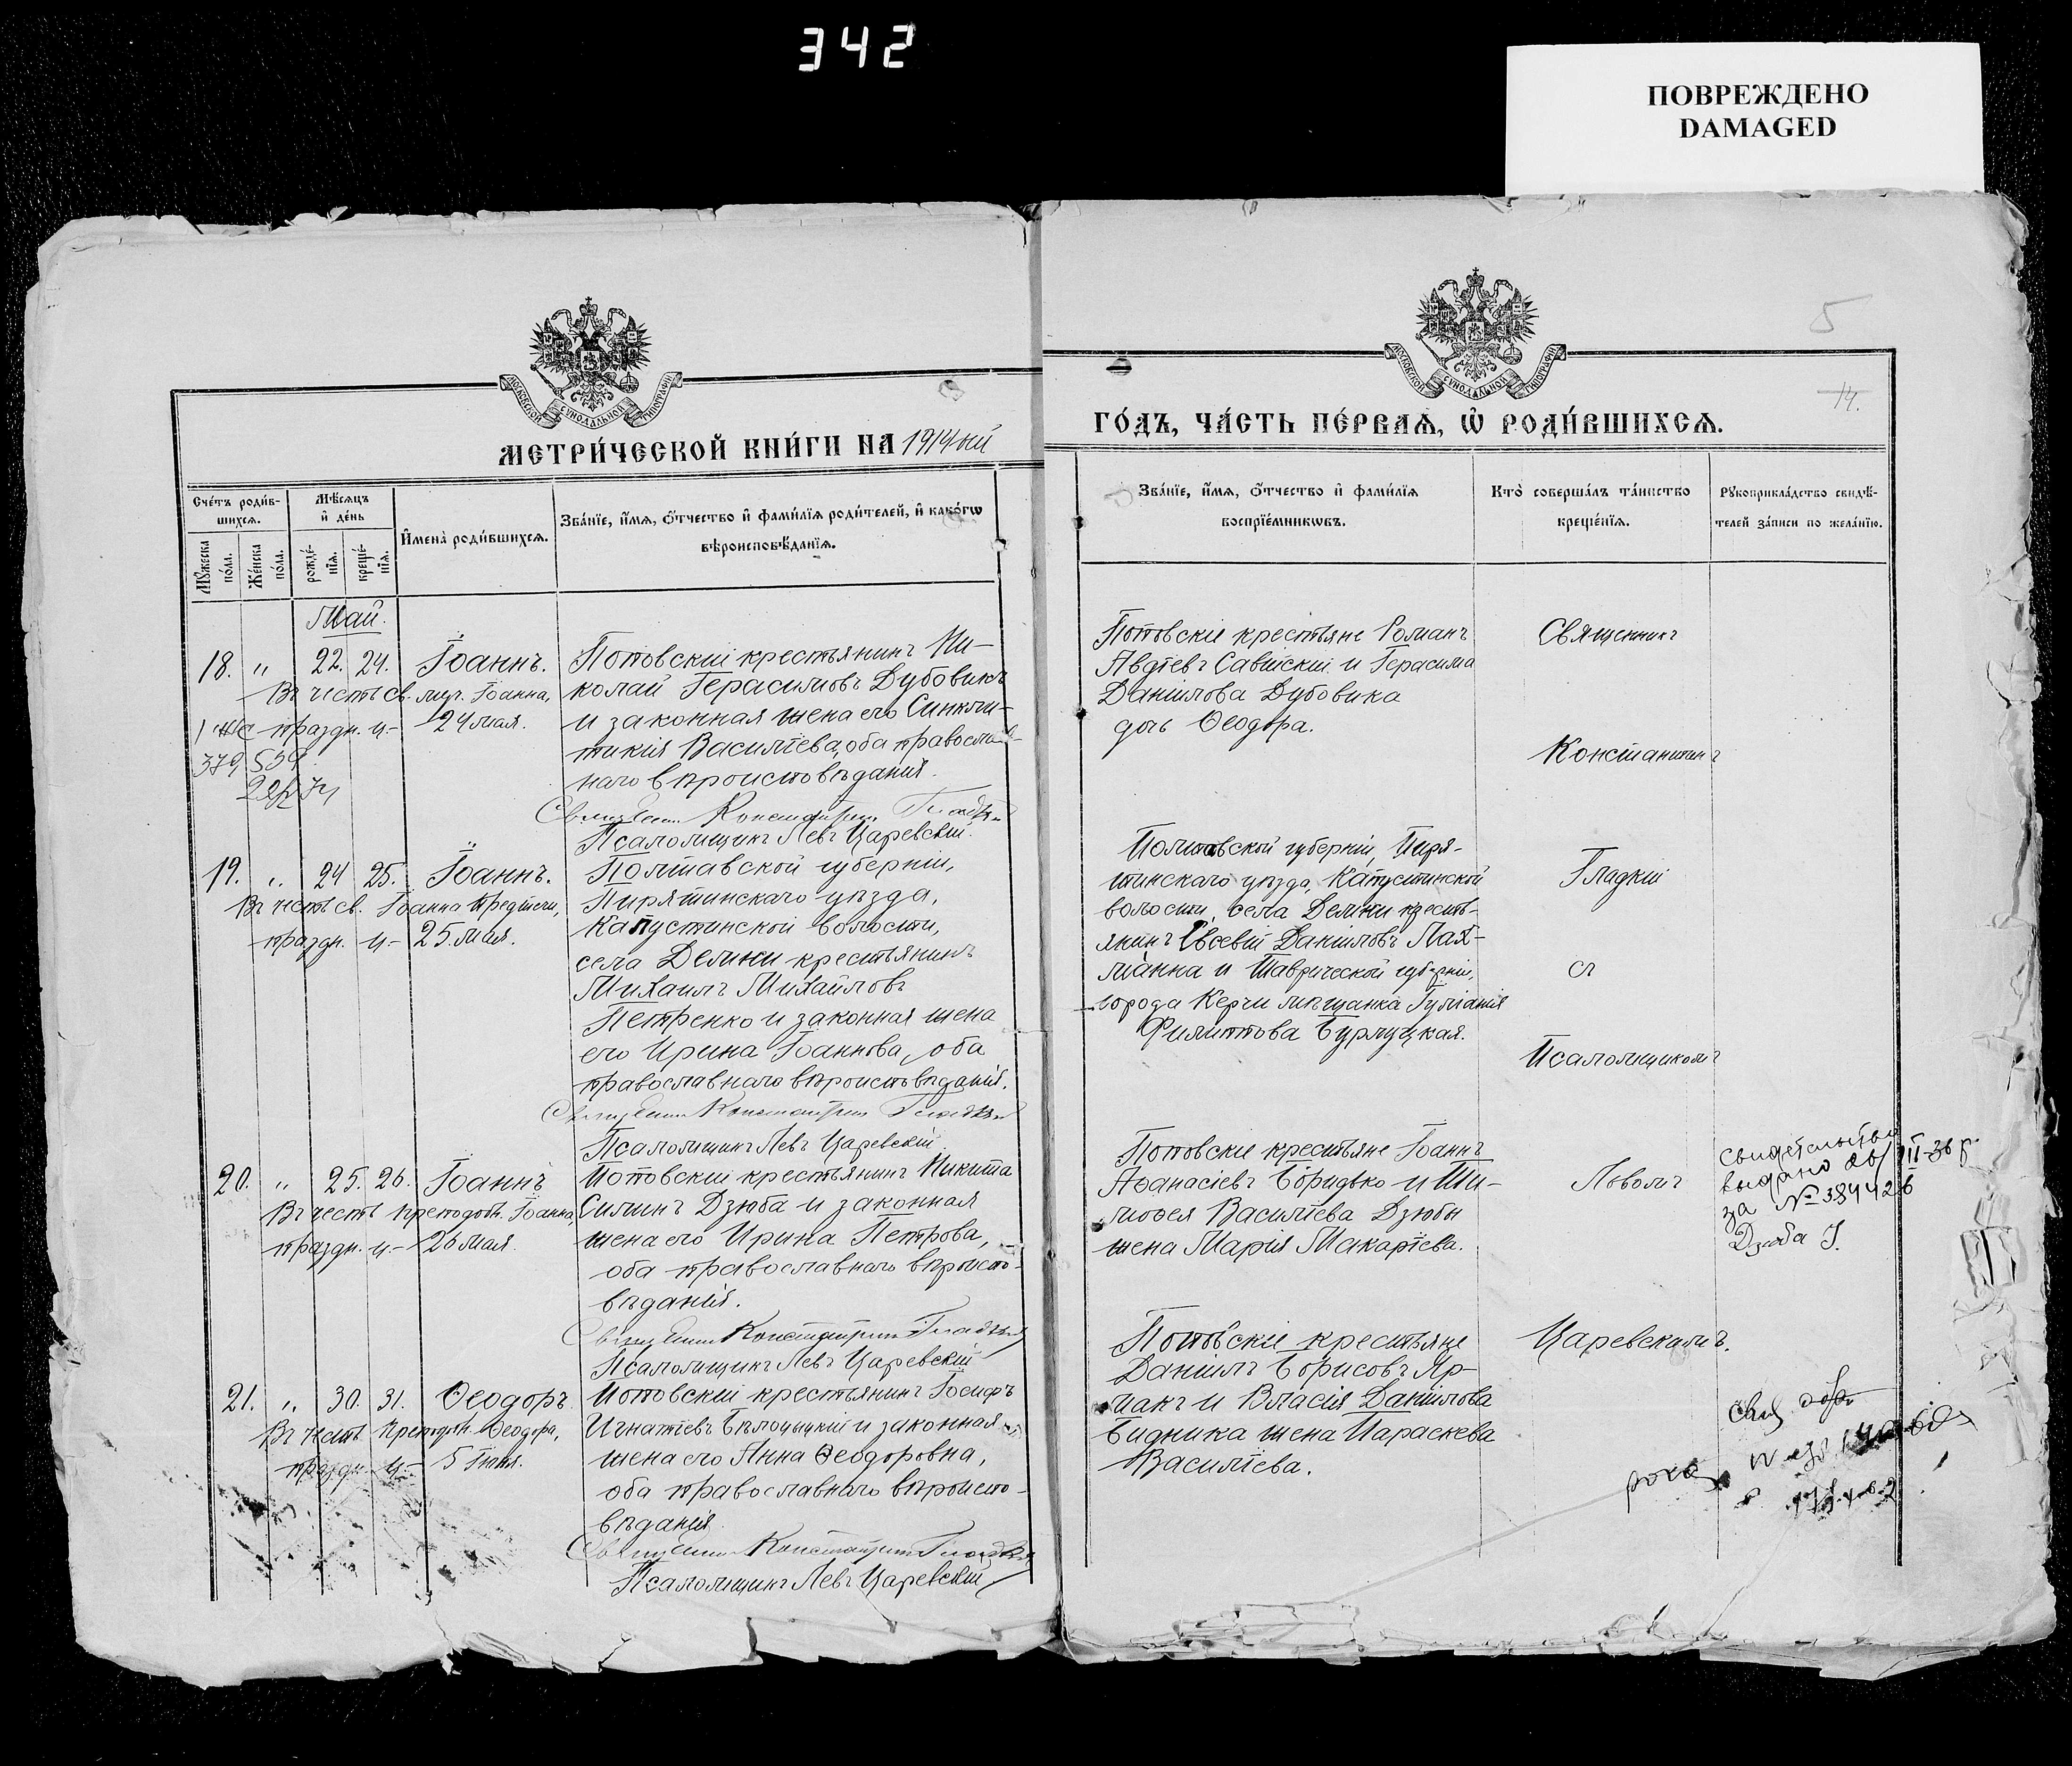 342
ПОВРЕЖДЕНО
DAMAGED
5
14.
МОСКОВСКОЙ СУНОДАЛЬНОЙ ТИПОГРАФІИ
МОСКОВСКОЙ СУНОДАЛЬНОЙ ТИПОГРАФІИ
МЕТРИ́ЧЕСКОЙ КНИ́ГИ НА 1914ый
ГО́ДЪ, ЧА́СТЬ ПЕ́РВАѦ, Ѡ҆ РОДИ́ВШИХСѦ.
Сче́тъ роди́в-
шихсѧ.
Мꙋ́жеска по́ла.
Же́нска по́ла.
Мѣ́сѧцъ
и҆ де́нь
рожде́-
нїѧ.
креще́-
нїѧ.
И҆мена̀ роди́вшихсѧ.
Зва́нїе, и҆́мѧ, ѻ҆́тчество и҆ фами́лїѧ роди́телей, и҆ како́гѡ
вѣроисповѣ́данїѧ.
Зва́нїе, и҆́мѧ, ѻ҆́тчество и҆ фами́лїѧ
воспрїе́мникѡвъ.
Кто̀ соверша́лъ та́инство
креще́нїѧ.
Рꙋкоприкла́дство свидѣ́-
телей за́писи по жела́нїю.
Май.
18. „ 22. 24. Іоаннъ.
Въ честь св. муч. Іоанна,
праздн. ц.- 24 мая.
379 539
Поповскій крестьянинъ Ни-
колай Герасимовъ Дубовикъ
и законная жена его Синкли-
тикія Василіева, оба православ-
наго вѣроисповѣданія.
Священникъ Константинъ Гладкій
Псаломщикъ Левъ Царевскій.
Поповскіе крестьяне Романъ
Авдіевъ Савійскій и Герасима
Данилова Дубовика
дочь Ѳеодора.
Священникъ
Константинъ
19. „ 24 25. Іоаннъ.
Въ честь св. Іоанна Предтечи,
праздн. ц.- 25. мая.
Полтавской губерніи,
Пирятинскаго уѣзда,
Капустинской волости,
села Демки крестьянинъ
Михаилъ Михайловъ
Петренко и законная жена
его Ирина Іоаннова, оба
православнаго вѣроисповѣданія.
Священникъ Константинъ Гладкій
Псаломщикъ Левъ Царевскій
Полтавской губерніи, Пиря-
тинскаго уѣзда, Капустинской
волости, села Демки кресть-
янинъ Евсевій Даніиловъ
и Таврической губерніи,
города Керчи мѣщанка Іуліанія
Филиппова Бурлуцкая.
Гладкій
съ
Псаломщикомъ
20. „ 25. 26. Іоаннъ
Въ честь преподобн. Іоанна,
праздн. ц.- 26 мая.
Поповскій крестьянинъ Никита
Симинъ Дзюба и законная
жена его Ирина Петрова,
оба православнаго вѣроиспо-
вѣданія.
Священникъ Константинъ Гладкій
Псаломщикъ Левъ Царевскій
Поповскіе крестьяне Іоаннъ
Аѳанасіевъ Боридько и Ти-
моѳея Василіева Дзюбы
жена Марія Макаріева.
Львомъ
свидетельство
выдано 26/III-36 г.
за № 384426
Дзюба І.
21. „ 30. 31. Ѳеодоръ.
Въ честь преподобн. Ѳеодора,
праздн. ц.- 5 Іюня.
Поповскій крестьянинъ Іосифъ
Игнатіевъ Бѣлоцыцкій и законная
жена его Анна Ѳеодоровна,
оба православнаго вѣроиспо-
вѣданія.
Священникъ Константинъ Гладкій
Псаломщикъ Левъ Царевскій
Поповскіе крестьяне
Даніилъ Борисовъ Яр-
макъ и Власія Даніилова
Бидника жена Параскева
Василіева.
Царевскимъ.